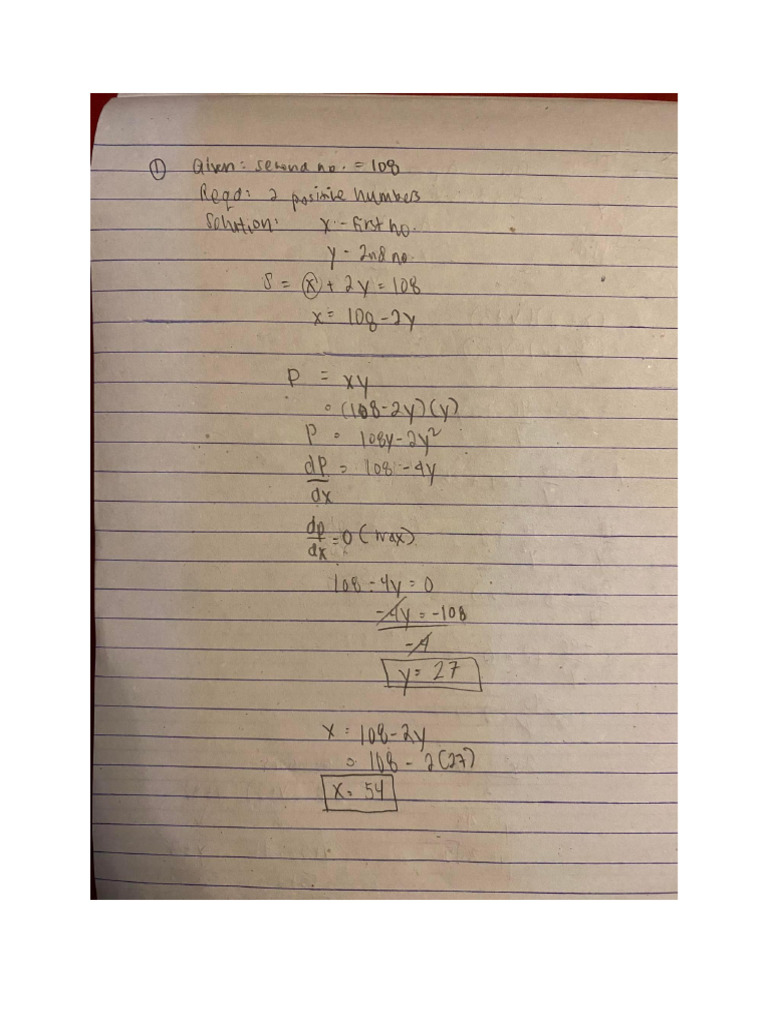 ① Given: second no. = 108
Reqd: 2 positive numbers
Solution: x - first no.
y - 2nd no.
S = x + 2y = 108
x = 108 - 2y
P = xy
= (108-2y)(y)
P = 108y - 2y²
dP/dx = 108 - 4y
dp/dx = 0 (max)
108 - 4y = 0
-4y = -108
-4
y = 27
x = 108 - 2y
= 108 - 2(27)
x = 54